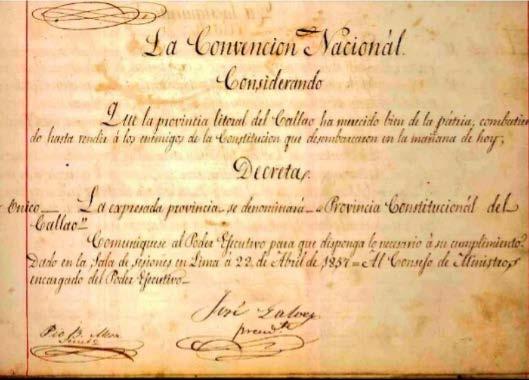 La Convencion Nacional.
Considerando
Que la provincia litoral del Callao ha merecido bien de la pátria, combatien
do hasta rendir á los enemigos de la Constitucion que desembarcaron en la mañana de hoy,
Decreta,
Unico_ La expresada provincia se denominará "Provincia Constitucional del
Callao"
Comuniquese al Poder Ejecutivo para que disponga lo necesario á su cumplimiento.
Dado en la Sala de sesiones en Lima á 22 de Abril de 1857 = Al Consejo de Ministros
encargado del Poder Ejecutivo_
José Galvez
Pio B. Mesa